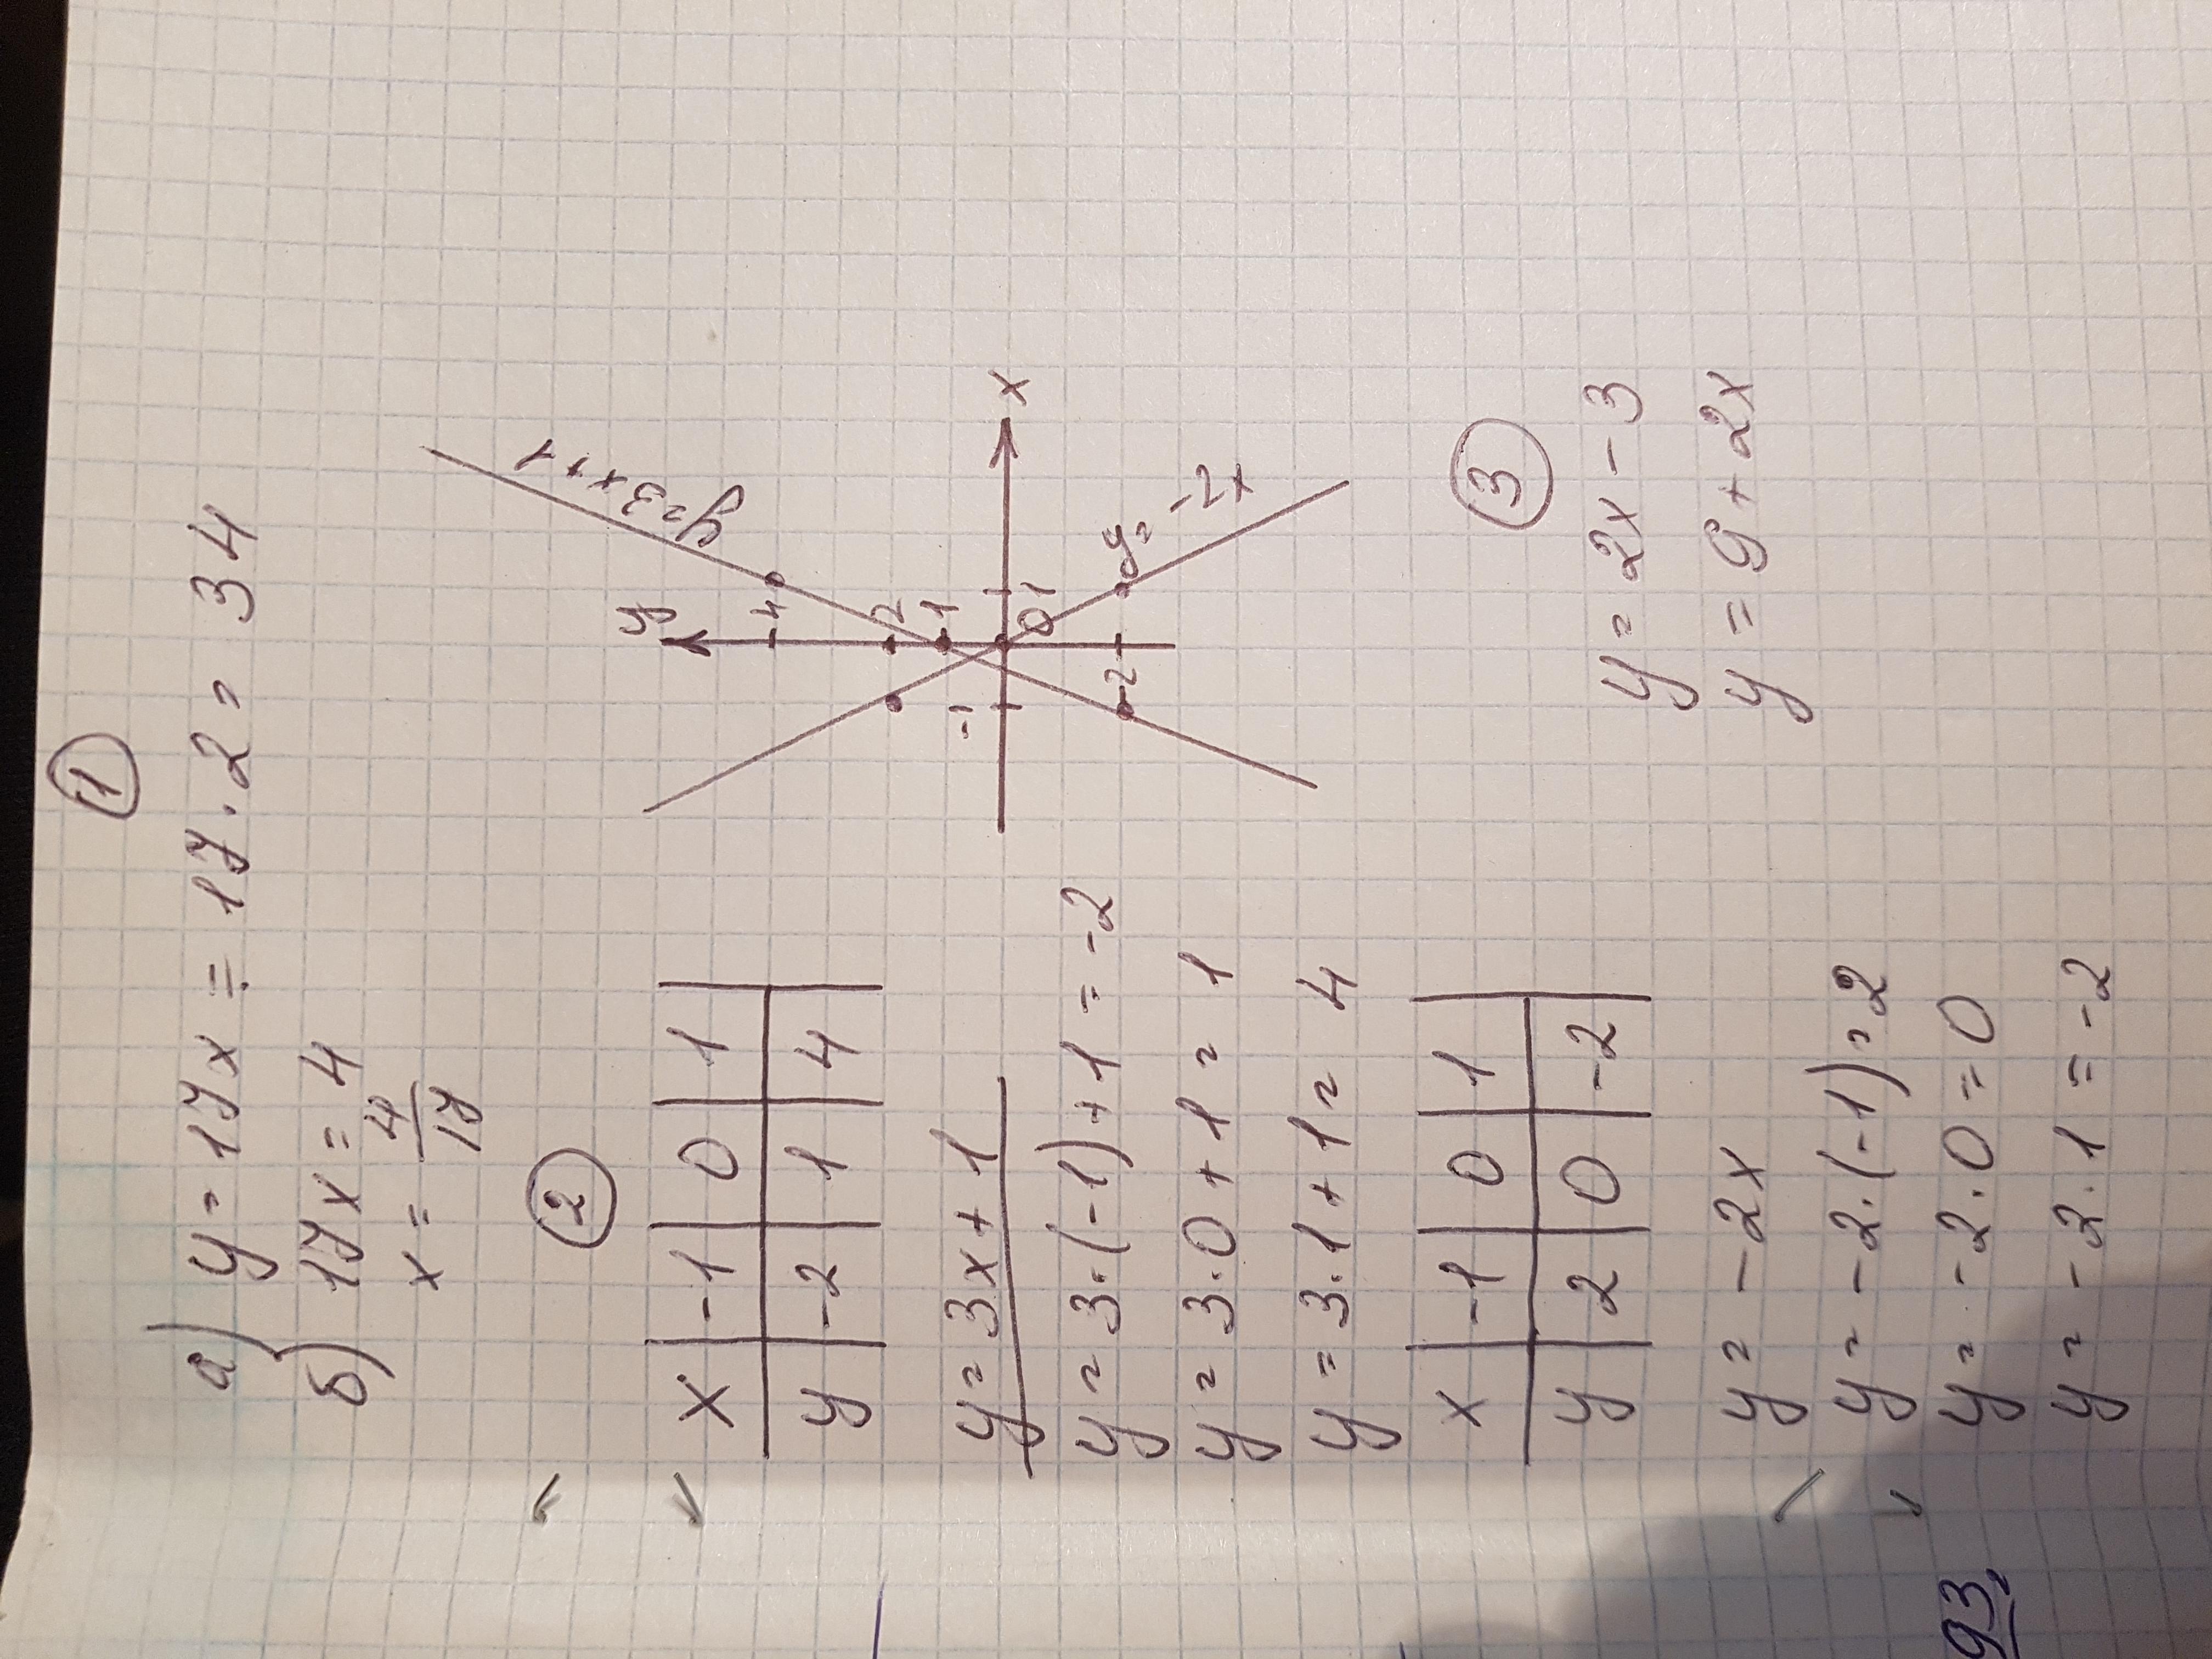 1
а) y = 17x = 17·2 = 34
б) 17x = 4
x = 4/17
2
x | -1 | 0 | 1
y | -2 | 1 | 4
y = 3x+1
y = 3·(-1)+1 = -2
y = 3·0+1 = 1
y = 3·1+1 = 4
x | -1 | 0 | 1
y | 2 | 0 | -2
y = -2x
y = -2·(-1) = 2
y = -2·0 = 0
y = -2·1 = -2
y
y=3x+1
4
2
1
-1
0
1
x
-2
y=-2x
3
y = 2x-3
y = 9+2x
93